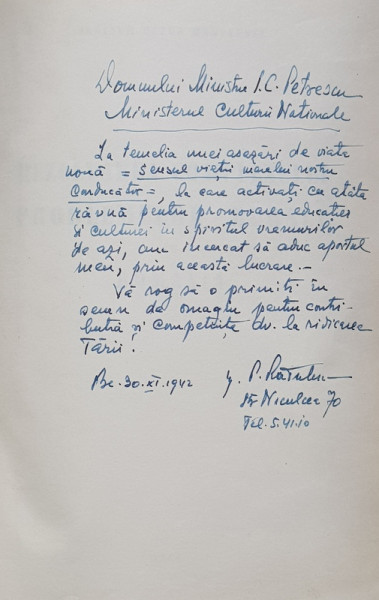 Domnului Ministru I. C. Petrescu
Ministerul Culturii Naționale
La temelia unei așezări de viață
nouă = sensul vieții marelui nostru
Conducător =, la care activați cu atâta
râvnă pentru promovarea educației
și culturii în spiritul vremurilor
de azi, am încercat să aduc aportul
meu, prin această lucrare. —
Vă rog să o primiți în
semn de omagiu pentru contri-
buția și competența dv. la ridicarea
Țării.
Buc. 30. XI. 1942
P.
Str. Niculcea 70
Tel. 5.41.10